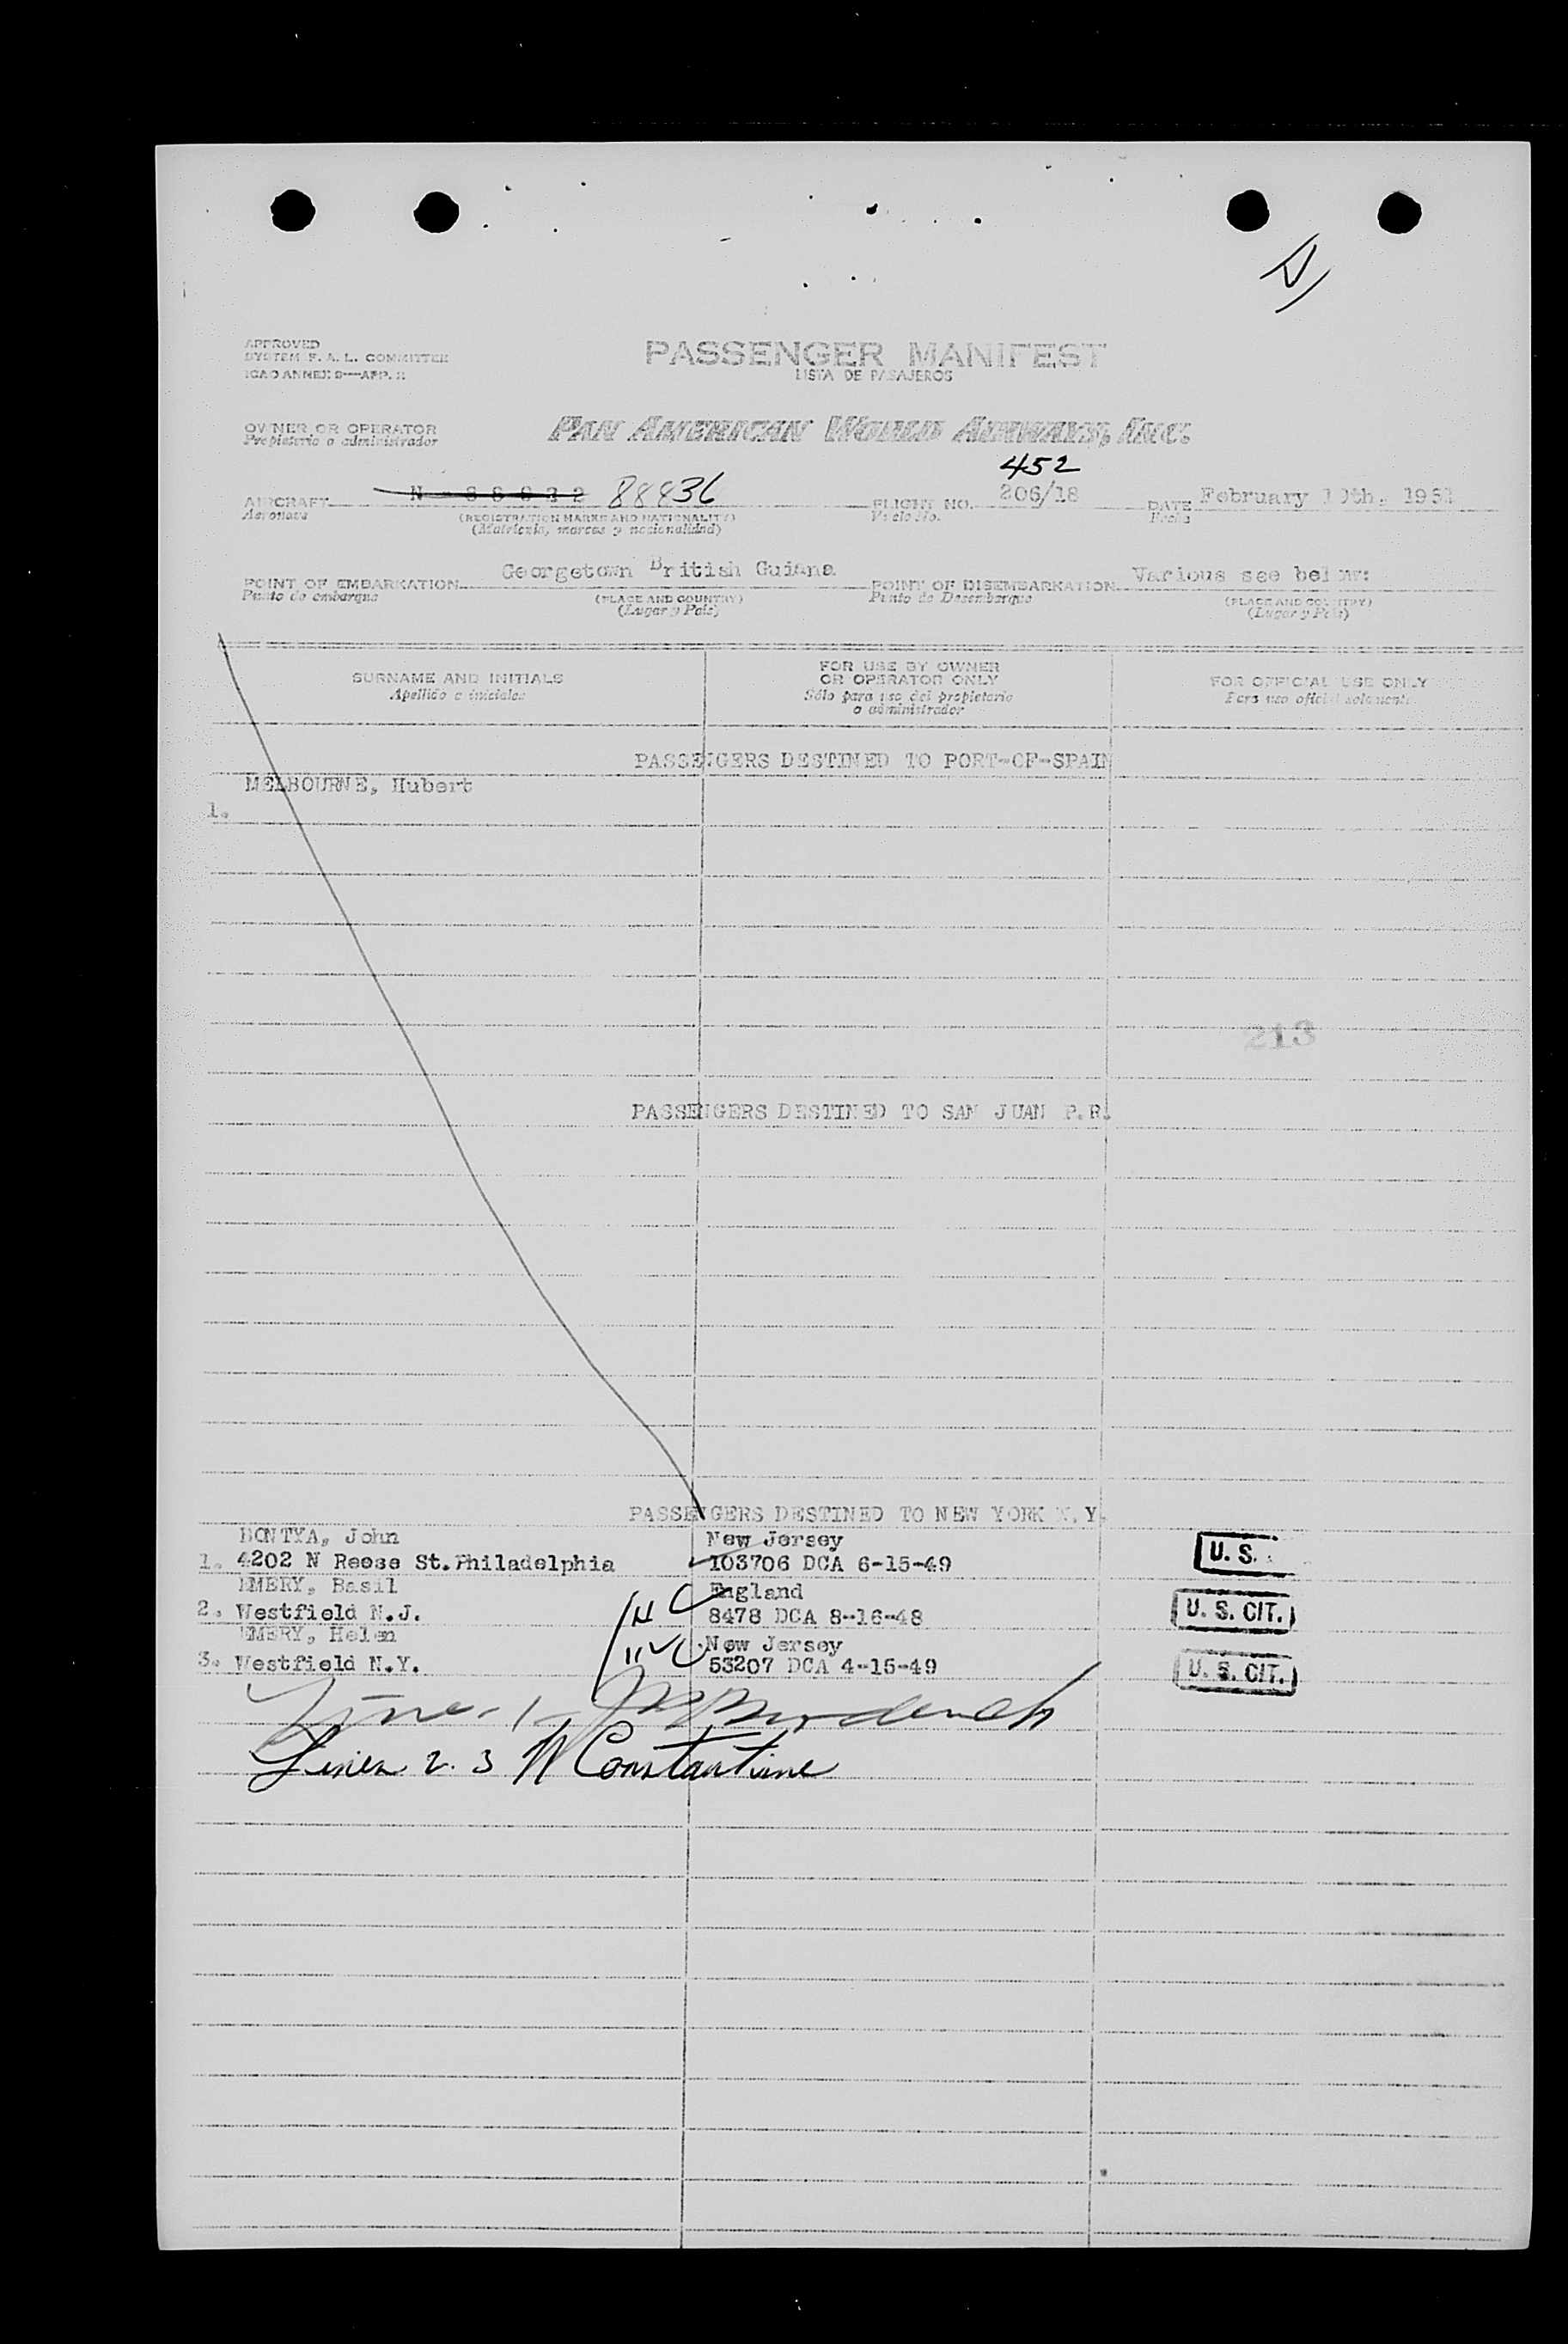 APPROVED
SYSTEM F. A. L. COMMITTEE
ICAO ANNEX 9—APP. 
PASSENGER MANIFEST
LISTA DE PASAJEROS
OWNER OR OPERATOR
Propietario o administrador
PAN AMERICAN WORLD AIRWAYS, INC.
452
AIRCRAFT 88836 FLIGHT NO. 206/18 DATE February th, 1951
Aeronave (REGISTRATION MARKS AND NATIONALITY) Vuelo No. Fecha
(Matrícula, marcas y nacionalidad)
POINT OF EMBARKATION Georgetown British Guiana POINT OF DISEMBARKATION Various see below:
Punto de embarque (PLACE AND COUNTRY) Punto de Desembarque (PLACE AND COUNTRY)
(Lugar y País) (Lugar y País)
SURNAME AND INITIALS
Apellido e iniciales
FOR USE BY OWNER
OR OPERATOR ONLY
Sólo para uso del propietario
o administrador
FOR OFFICIAL USE ONLY
Para uso oficial solamente
PASSENGERS DESTINED TO PORT-OF-SPAIN
MELBOURNE, Hubert
1.
213
PASSENGERS DESTINED TO SAN JUAN P.R.
PASSENGERS DESTINED TO NEW YORK N.Y.
BONTYA, John New Jersey
1. 4202 N Reese St. Philadelphia 103706 DCA 6-15-49 U. S.
EMERY, Basil England
2. Westfield N.J. 8478 DCA 8-16-48 U. S. CIT.
EMERY, Helen New Jersey
3. Westfield N.Y. 53207 DCA 4-15-49 U. S. CIT.
Line 1
Lines 2. 3 N Constantine